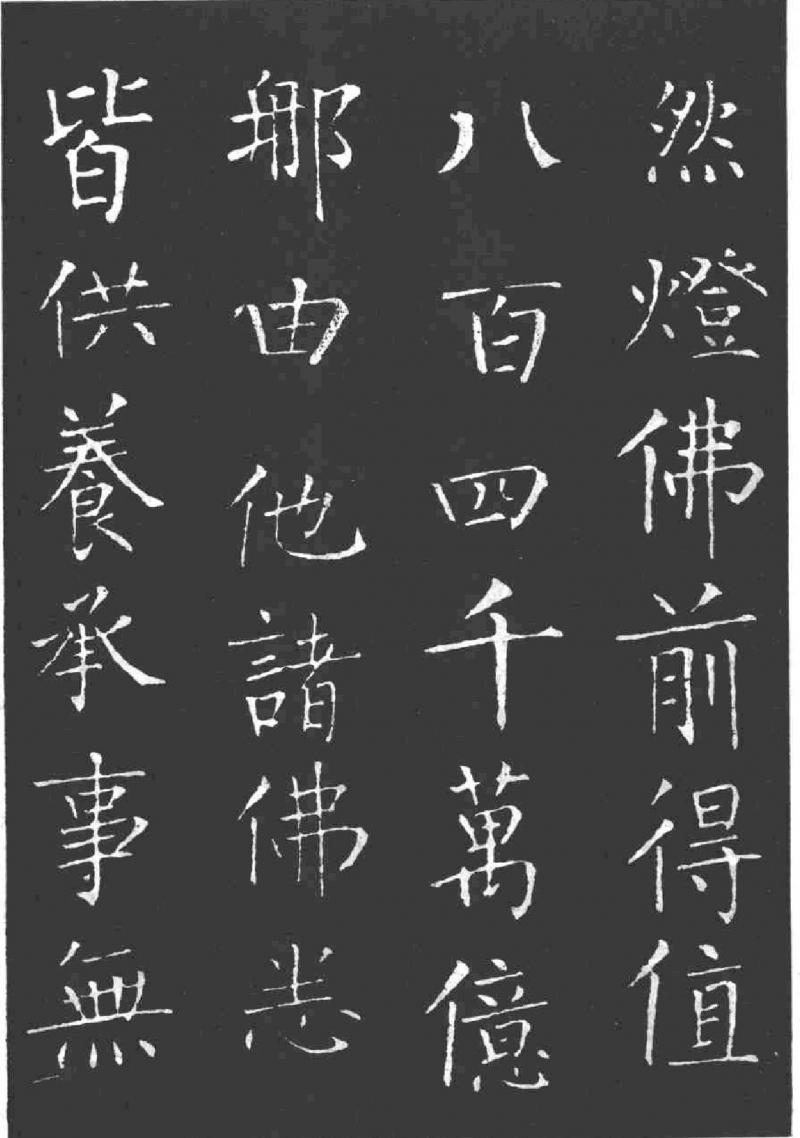 然燈佛前得值
八百四千萬億
那由他諸佛悉
皆供養承事無